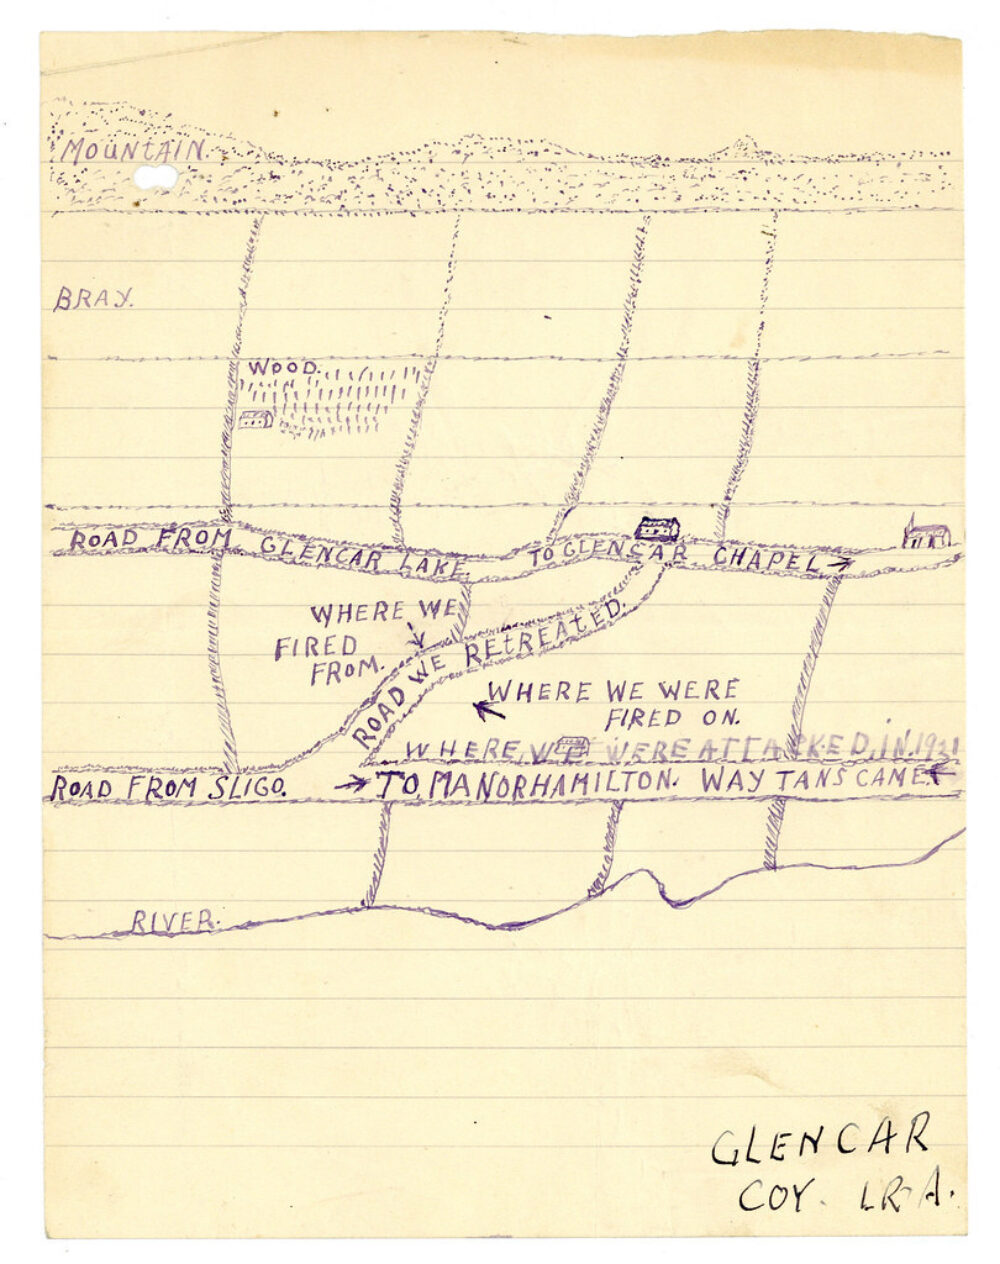 MOUNTAIN.
BRAY.
WOOD.
ROAD FROM GLENCAR LAKE. TO GLENCAR CHAPEL
WHERE WE
FIRED
FROM.
ROAD WE RETREATED.
WHERE WE WERE
FIRED ON.
WHERE WE WERE ATTACKED, IN. 1921
ROAD FROM SLIGO. TO, MANORHAMILTON. WAY TANS CAME.
RIVER.
GLENCAR
COY. I.R.A.